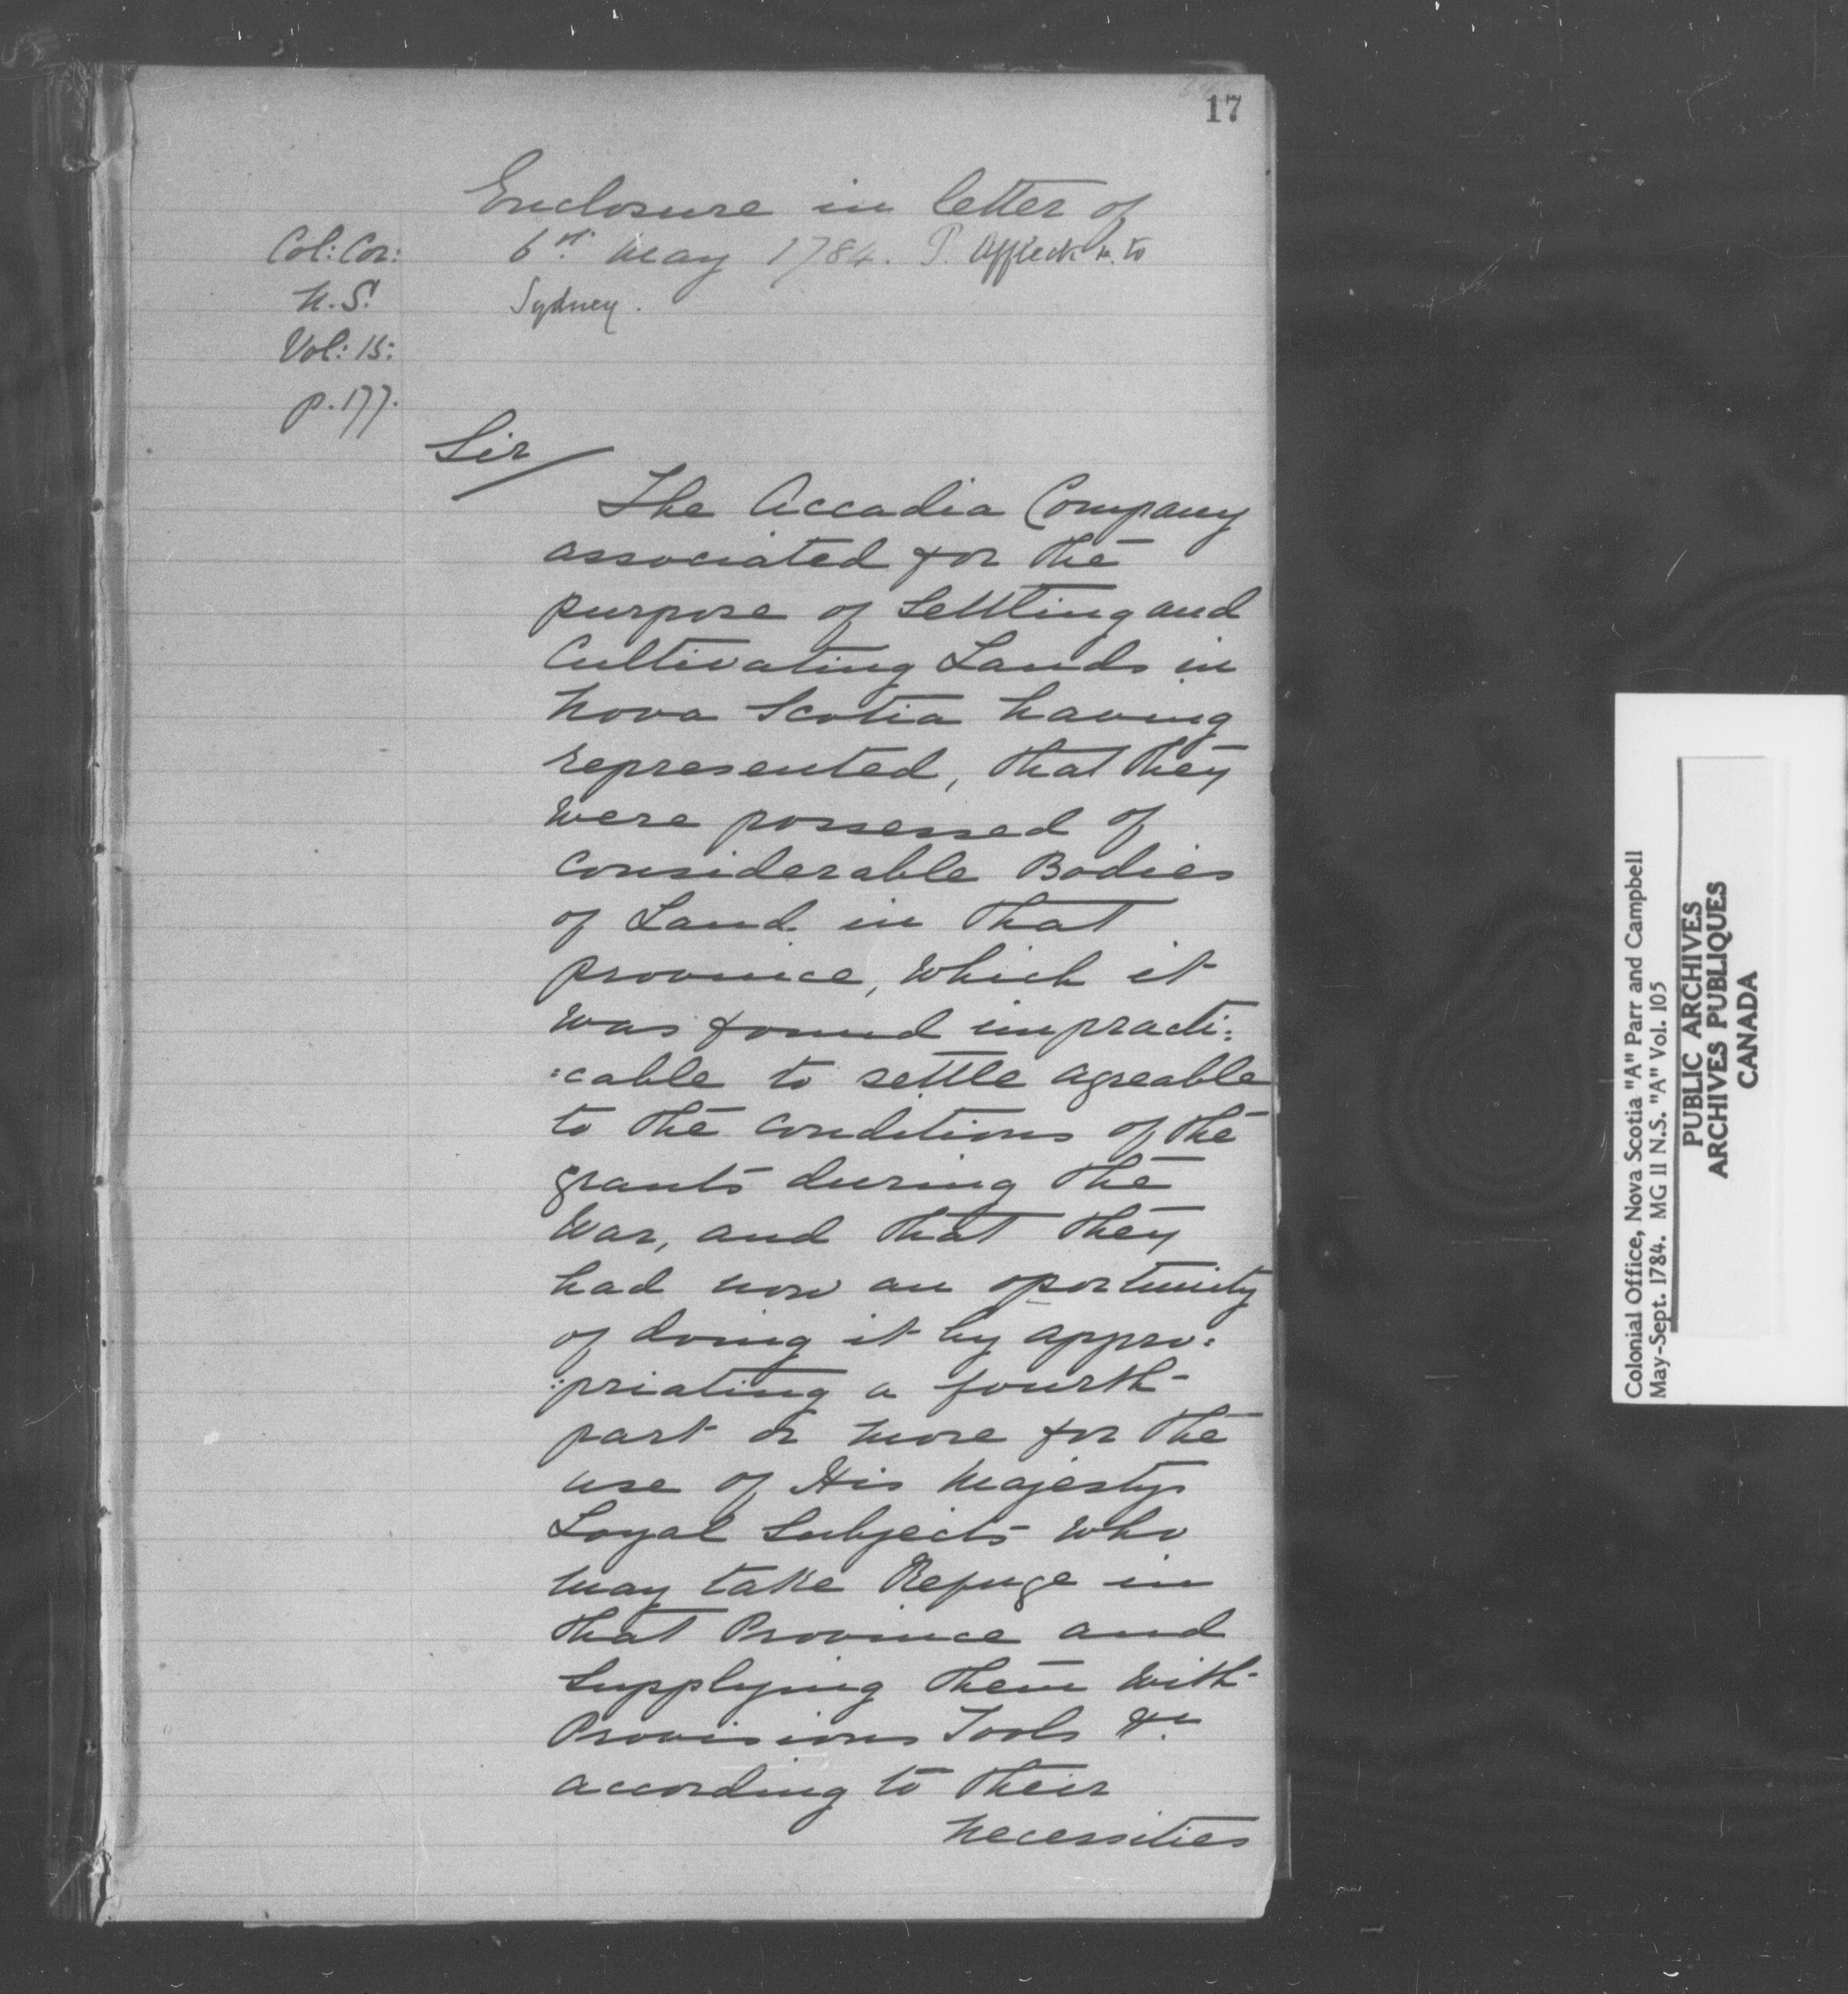 17
Enclosure in letter of
Col: Cor: 6th May 1784. P. Affleck to
N.S. Sydney.
Vol: 15:
p. 177.
Sir
The Accadia Company
associated for the
purpose of Settling and
Cultivating Lands in
Nova Scotia having
represented, that they
were possessed of
considerable Bodies
of Land in that
province, which it
was found impracti:
:cable to settle agreable
to the conditions of the
grants during the
War, and that they
had now an oportunity
of doing it by appro:
:priating a fourth
part or more for the
use of His Majestys
Loyal Subjects who
may take Refuge in
that Province and
Supplying them with
Provisions Tools &c.
according to their
necessities
Colonial Office, Nova Scotia "A" Parr and Campbell
May-Sept. 1784. MG 11 N.S. "A" Vol. 105
PUBLIC ARCHIVES
ARCHIVES PUBLIQUES
CANADA